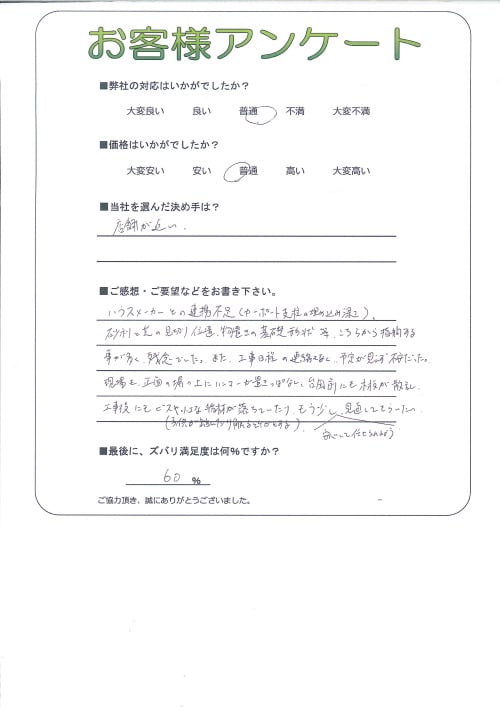 お客様アンケート
■弊社の対応はいかがでしたか？
大変良い 良い 普通 不満 大変不満
■価格はいかがでしたか？
大変安い 安い 普通 高い 大変高い
■当社を選んだ決め手は？
店舗が近い。
■ご感想・ご要望などをお書き下さい。
ハウスメーカーとの連携不足(カーポート支柱の埋め込み深さ)、
砂利と芝の見切り位置、物置きの基礎形状 等、こちらから指摘する
事が多く、残念でした。また、工事日程の連絡もなく、予定が見えず不安だった。
現場も、正面の塀の上にハンマーが置きっぱなし、台風前にも木板が散乱し、
工事後にもビスや 端材が落ちていたり、もう少し見直してもらいたい。
(子供が
安心して任せられる)
■最後に、ズバリ満足度は何％ですか？
60 %
ご協力頂き、誠にありがとうございました。